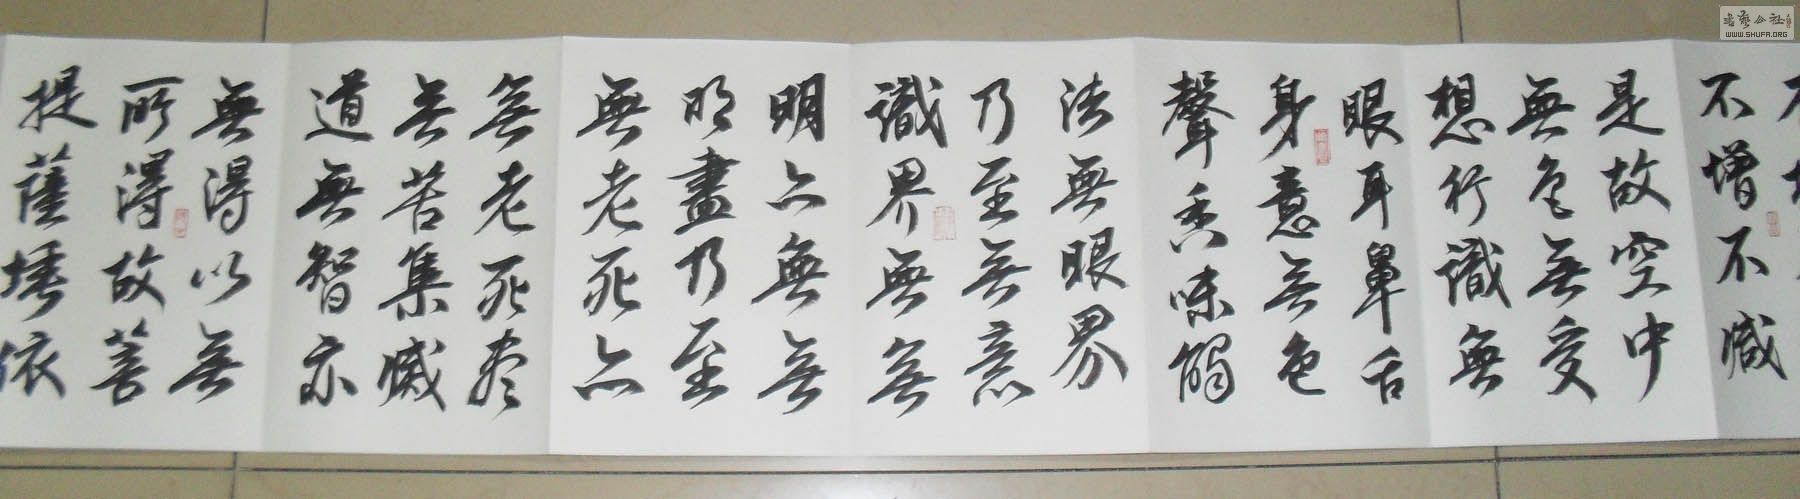 不增不減
是故空中
無色無受
想行識無
眼耳鼻舌
身意無色
聲香味觸
法無眼界
乃至無意
識界無無
明亦無無
明盡乃至
無老死亦
無老死尽
無苦集滅
道無智亦
無得以無
所得故菩
提薩埵依
書藝公社
WWW.SHUFA.ORG